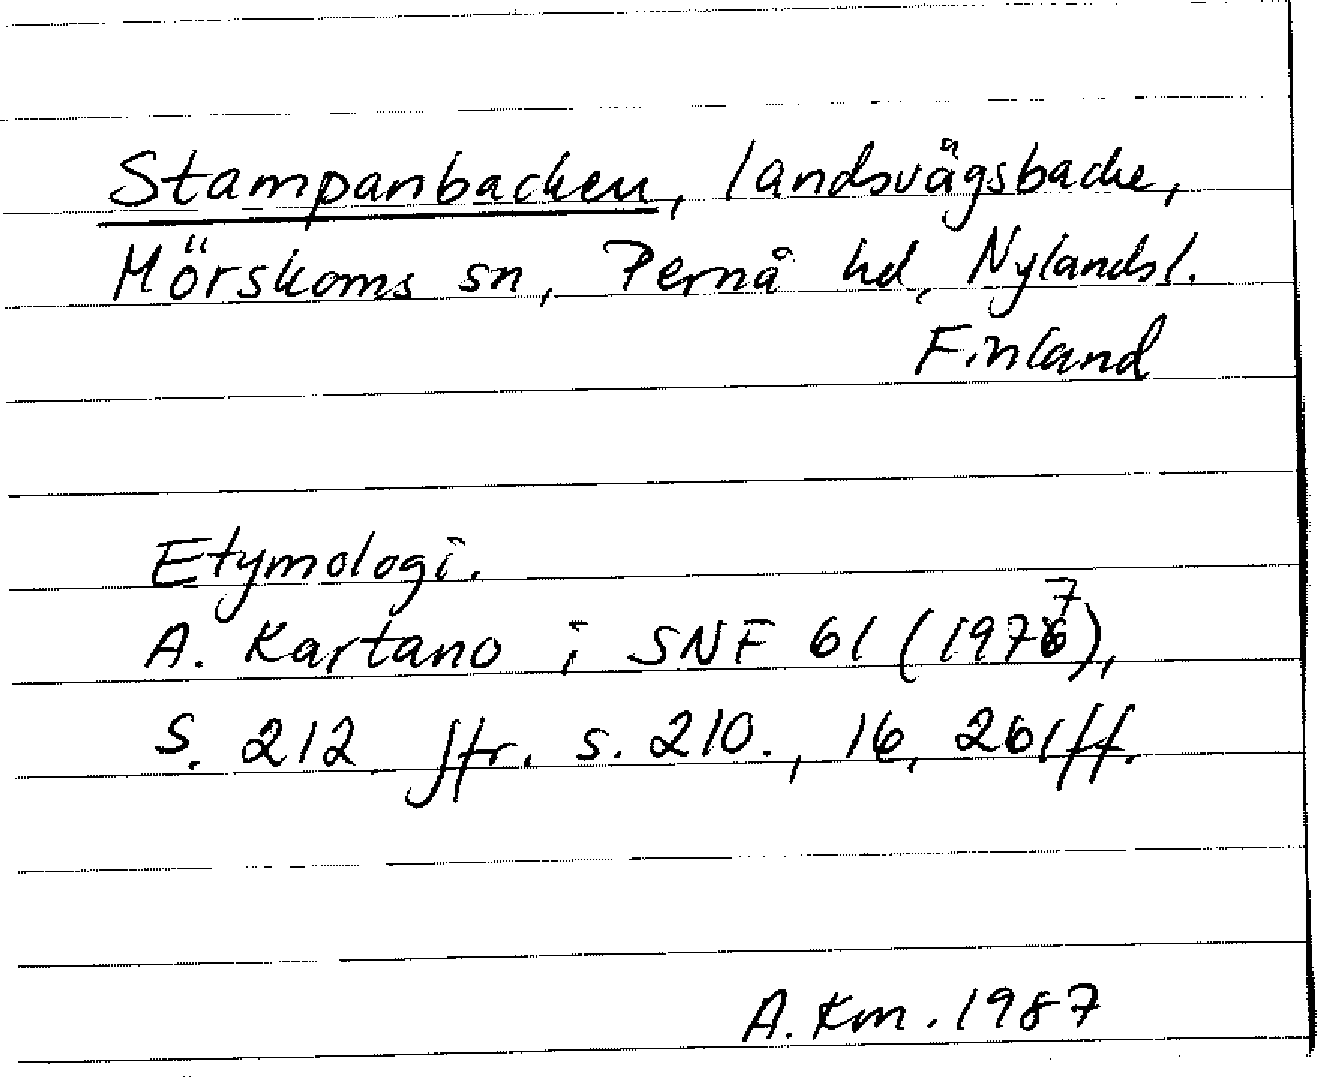 Stampanbacken, landsvägsbacke,
Mörskoms sn, Pernå hd, Nylandsl.
Finland
Etymologi.
A. Kartano i SNF 61 (1977),
s. 212 jfr. s. 210., 16, 261ff.
A. Km. 1987